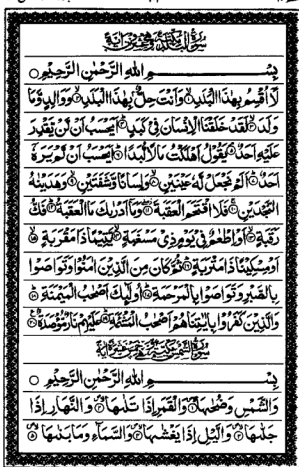 سورة البلد مكية وهي عشرون آية
بِسْمِ اللهِ الرَّحْمٰنِ الرَّحِيْمِ
لَاۤ اُقْسِمُ بِهٰذَا الْبَلَدِ ۙ وَاَنْتَ حِلٌّۢ بِهٰذَا الْبَلَدِ ۙ وَوَالِدٍ وَّمَا
وَلَدَ ۙ لَقَدْ خَلَقْنَا الْاِنْسَانَ فِيْ كَبَدٍ ؕ اَيَحْسَبُ اَنْ لَّنْ يَّقْدِرَ
عَلَيْهِ اَحَدٌ ۘ يَقُوْلُ اَهْلَكْتُ مَالًا لُّبَدًا ؕ اَيَحْسَبُ اَنْ لَّمْ يَرَهٗۤ
اَحَدٌ ؕ اَلَمْ نَجْعَلْ لَّهٗ عَيْنَيْنِ ۙ وَلِسَانًا وَّشَفَتَيْنِ ۙ وَهَدَيْنٰهُ
النَّجْدَيْنِ ۚ فَلَا اقْتَحَمَ الْعَقَبَةَ ۖ وَمَاۤ اَدْرٰىكَ مَا الْعَقَبَةُ ؕ فَكُّ
رَقَبَةٍ ۙ اَوْ اِطْعٰمٌ فِيْ يَوْمٍ ذِيْ مَسْغَبَةٍ ۙ يَّتِيْمًا ذَا مَقْرَبَةٍ ۙ
اَوْ مِسْكِيْنًا ذَا مَتْرَبَةٍ ؕ ثُمَّ كَانَ مِنَ الَّذِيْنَ اٰمَنُوْا وَتَوَاصَوْا
بِالصَّبْرِ وَتَوَاصَوْا بِالْمَرْحَمَةِ ؕ اُولٰٓئِكَ اَصْحٰبُ الْمَيْمَنَةِ ؕ
وَالَّذِيْنَ كَفَرُوْا بِاٰيٰتِنَا هُمْ اَصْحٰبُ الْمَشْـَٔمَةِ ؕ عَلَيْهِمْ نَارٌ مُّؤْصَدَةٌ
سورة الشمس مكية وهي خمس عشرة آية
بِسْمِ اللهِ الرَّحْمٰنِ الرَّحِيْمِ
وَالشَّمْسِ وَضُحٰىهَا ۙ وَالْقَمَرِ اِذَا تَلٰىهَا ۙ وَالنَّهَارِ اِذَا
جَلّٰىهَا ۙ وَالَّيْلِ اِذَا يَغْشٰىهَا ۙ وَالسَّمَآءِ وَمَا بَنٰىهَا